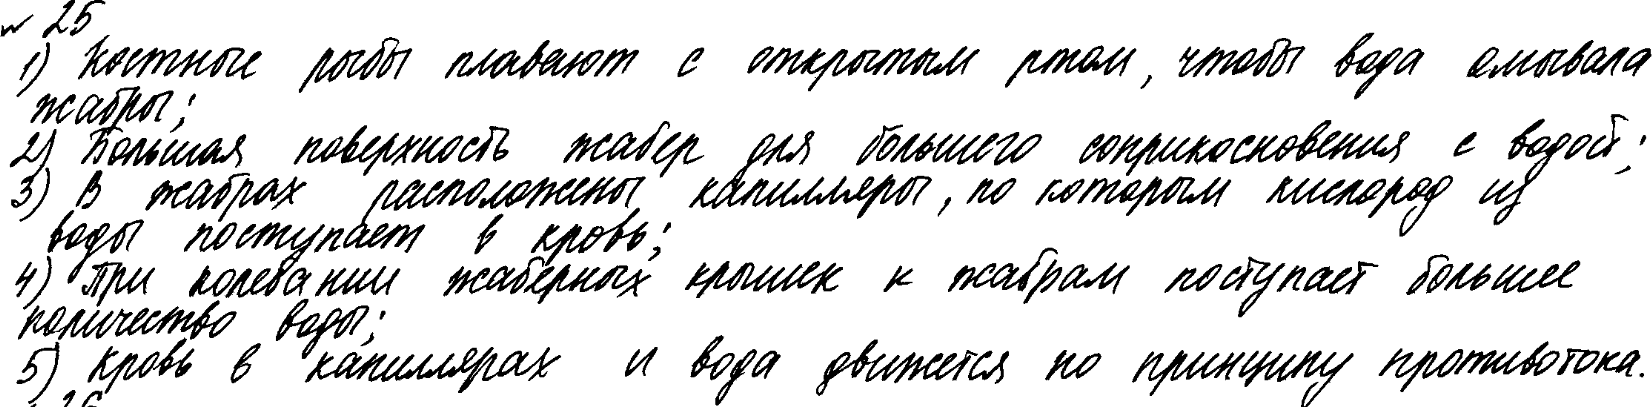 № 25
1) Костные рыбы плавают с открытым ртом, чтобы вода омывала
жабры;
2) Большая поверхность жабер для большего соприкосновения с водой;
3) В жабрах расположены капилляры, по которым кислород из
воды поступает в кровь;
4) При колебании жаберных крышек к жабрам поступает большее
количество воды;
5) Кровь в капиллярах и вода движется по принципу противотока.